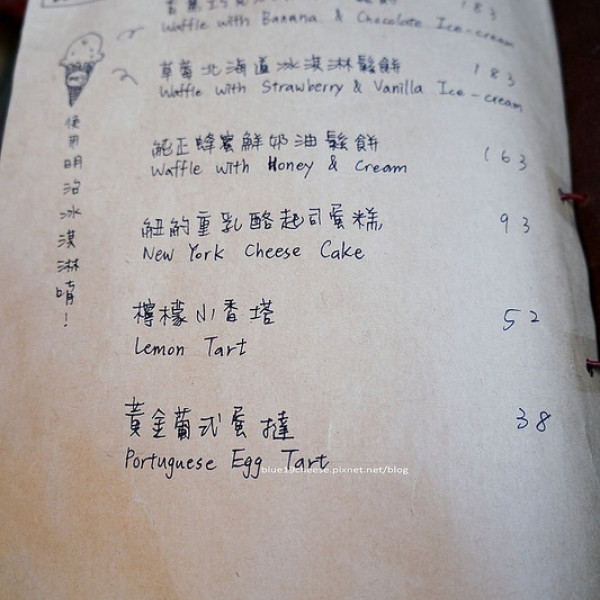 Waffle with Banana & Chocolate Ice-cream
183
草莓北海道冰淇淋鬆餅
183
Waffle with Strawberry & Vanilla Ice-cream
純正蜂蜜鮮奶油鬆餅
163
Waffle with Honey & Cream
紐約重乳酪起司蛋糕
93
New York Cheese Cake
檸檬小香塔
52
Lemon Tart
黃金葡式蛋撻
38
Portuguese Egg Tart
使用明治冰淇淋唷!
blue19cheese.pixnet.net/blog